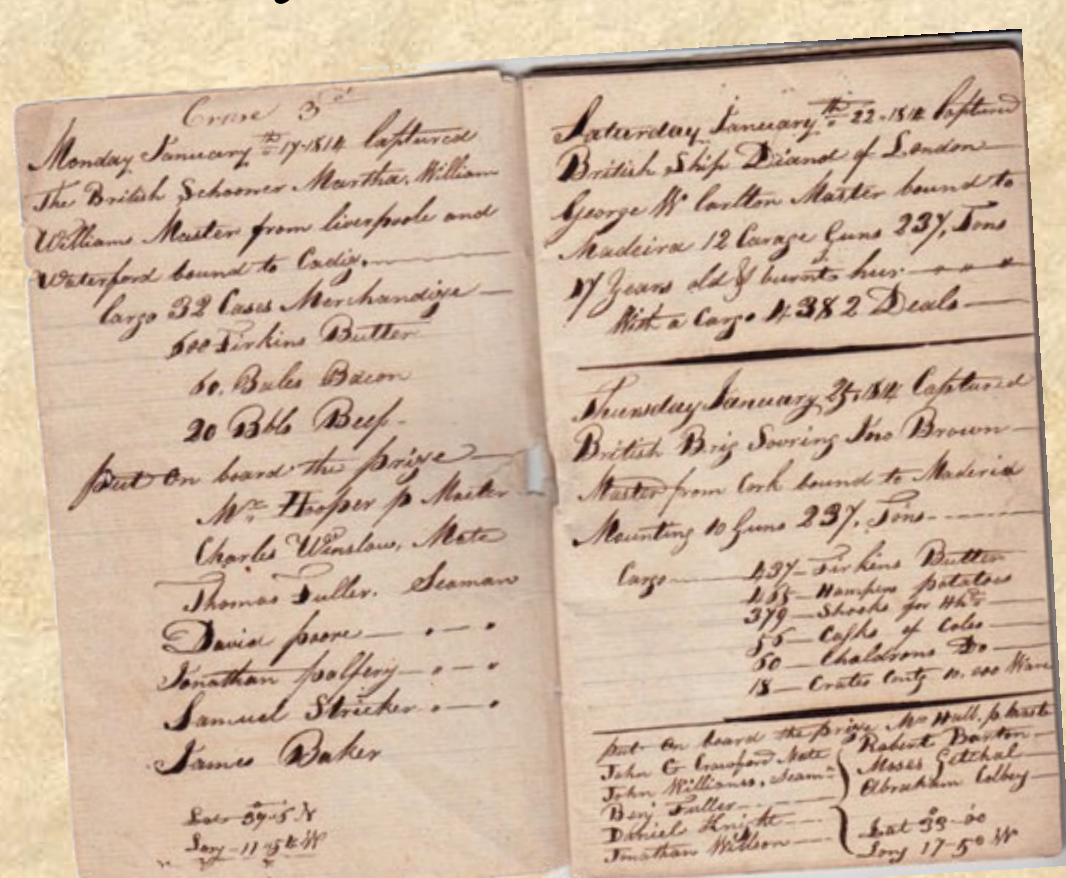 Cruse 3rd
Monday January 17th 1814 Captured
The British Schooner Martha, William
Williams Master from liverpoole and
Waterford bound to Cadiz,
Cargo 32 Cases Merchandize
600 Firkins Butter
60, Bales Bacon
20 Bbls Beef
put on board the prize
Mr Hooper p Master
Charles Winslow, Mate
Thomas Fuller, Seaman
David poore
Jonathan palfery
Samuel Stricker
James Baker
Lat 39-5 N
Long 11-58 W
Saturday January 22th 1814 Captured
British Ship Diand of London
George W Carlton Master bound to
Madeira 12 Carage Guns 237, Tons
17 Years old & burnt her
With a Cargo 4382 Deals
Thursday January 25, 1814 Captured
British Brig Jno Brown
Master from Cork bound to Maderia
Mounting 10 Guns 237, Tons
Cargo 437 Firkins Butter
465 Hampers potatoes
379 Shooks for Hhds
56 Casks of Coles
50 Chaldrons Do
18 Crates Contg 10,000 Ware
put on board the prize Mr Hall, p Maste
John G Crawford Mate Robert Barton
John Williams, Seamn Moses Getchal
Benj Fuller Abraham Colbey
Daniel Knight Lat 33-00
Jonathan Willson Long 17-50 W